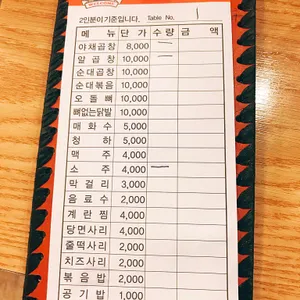 2인분이 기준입니다. Table No. 1
메 뉴 단 가 수 량 금 액
야채곱창 8,000
알 곱 창 10,000
순대곱창 10,000
순대볶음 10,000
오 돌 뼈 10,000
뼈없는닭발 10,000
매 화 수 5,000
청 하 5,000
맥 주 4,000
소 주 4,000
막 걸 리 3,000
음 료 수 2,000
계 란 찜 4,000
당면사리 4,000
쫄떡사리 2,000
치즈사리 2,000
볶 음 밥 2,000
공 기 밥 1,000